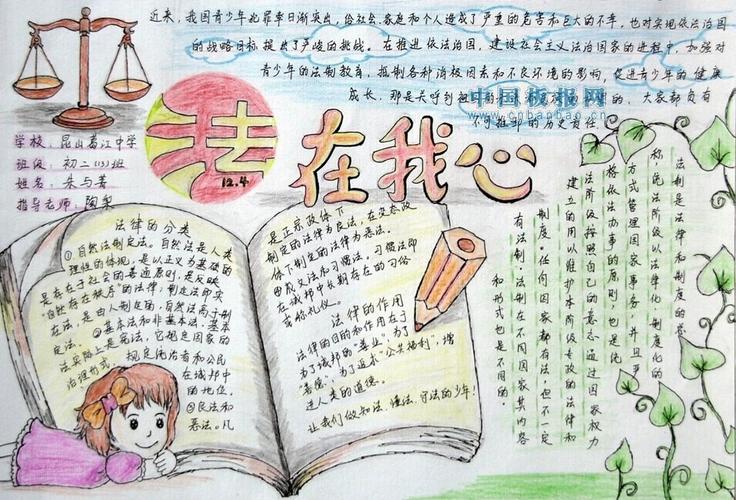 近来，我国青少年犯罪率日渐突出，给社会、家庭和个人造成了严重的危害和巨大的不幸，也对实现依法治国
的战略目标提出了严峻的挑战。在推进依法治国，建设社会主义法治国家的进程中，加强对
青少年的法制教育，抵制各种消极因素和不良环境的影响，促进青少年的健康
成长，那是关乎到祖国的
的，大家都负有
不可推卸的历史责任。
中国板报网
www.cnbanbao.cn
学校：昆山葛江中学
班级：初二(13)班
姓名：朱与菁
指导老师：陶梨
法
12.4
在我心
法律的分类
①自然法制定法。自然法是人类
理性的体现，是以正义为基础的
是存在于社会的普遍原则，是反映
"自然存在秩序"的法律；制定法即实
在法，是由人制定的，自然法高于制
定法。②基本法和非基本法，基本
法实际上是宪法，它规定国家的
治理形式，规定统治者和公民
在城邦中
的地位。
③良法和
恶法。凡
是正宗政体下
制定的法律为良法，在变态政
体下制定的法律为恶法。习惯法即
由成文法和习惯法。习惯法即
在城邦中长期存在的习俗
法律的作用
法律的目的和作用在于
为了城邦的"善业"，为了
"善德"，为了追求"公共福利"，增
进人类的道德。
让我们做知法、懂法、守法的少年！
法制是法律和制度的总
称，统治阶级以法律化、制度化的
方式管理国家事务，并且严
格依法办事的原则，也是统
治阶级按照自己的意志通过国家权力
建立的用以维护本阶级专政的法律和
制度，任何国家都有法，但不一定
有法制，法制在不同国家其内容
和形式也是不同的。